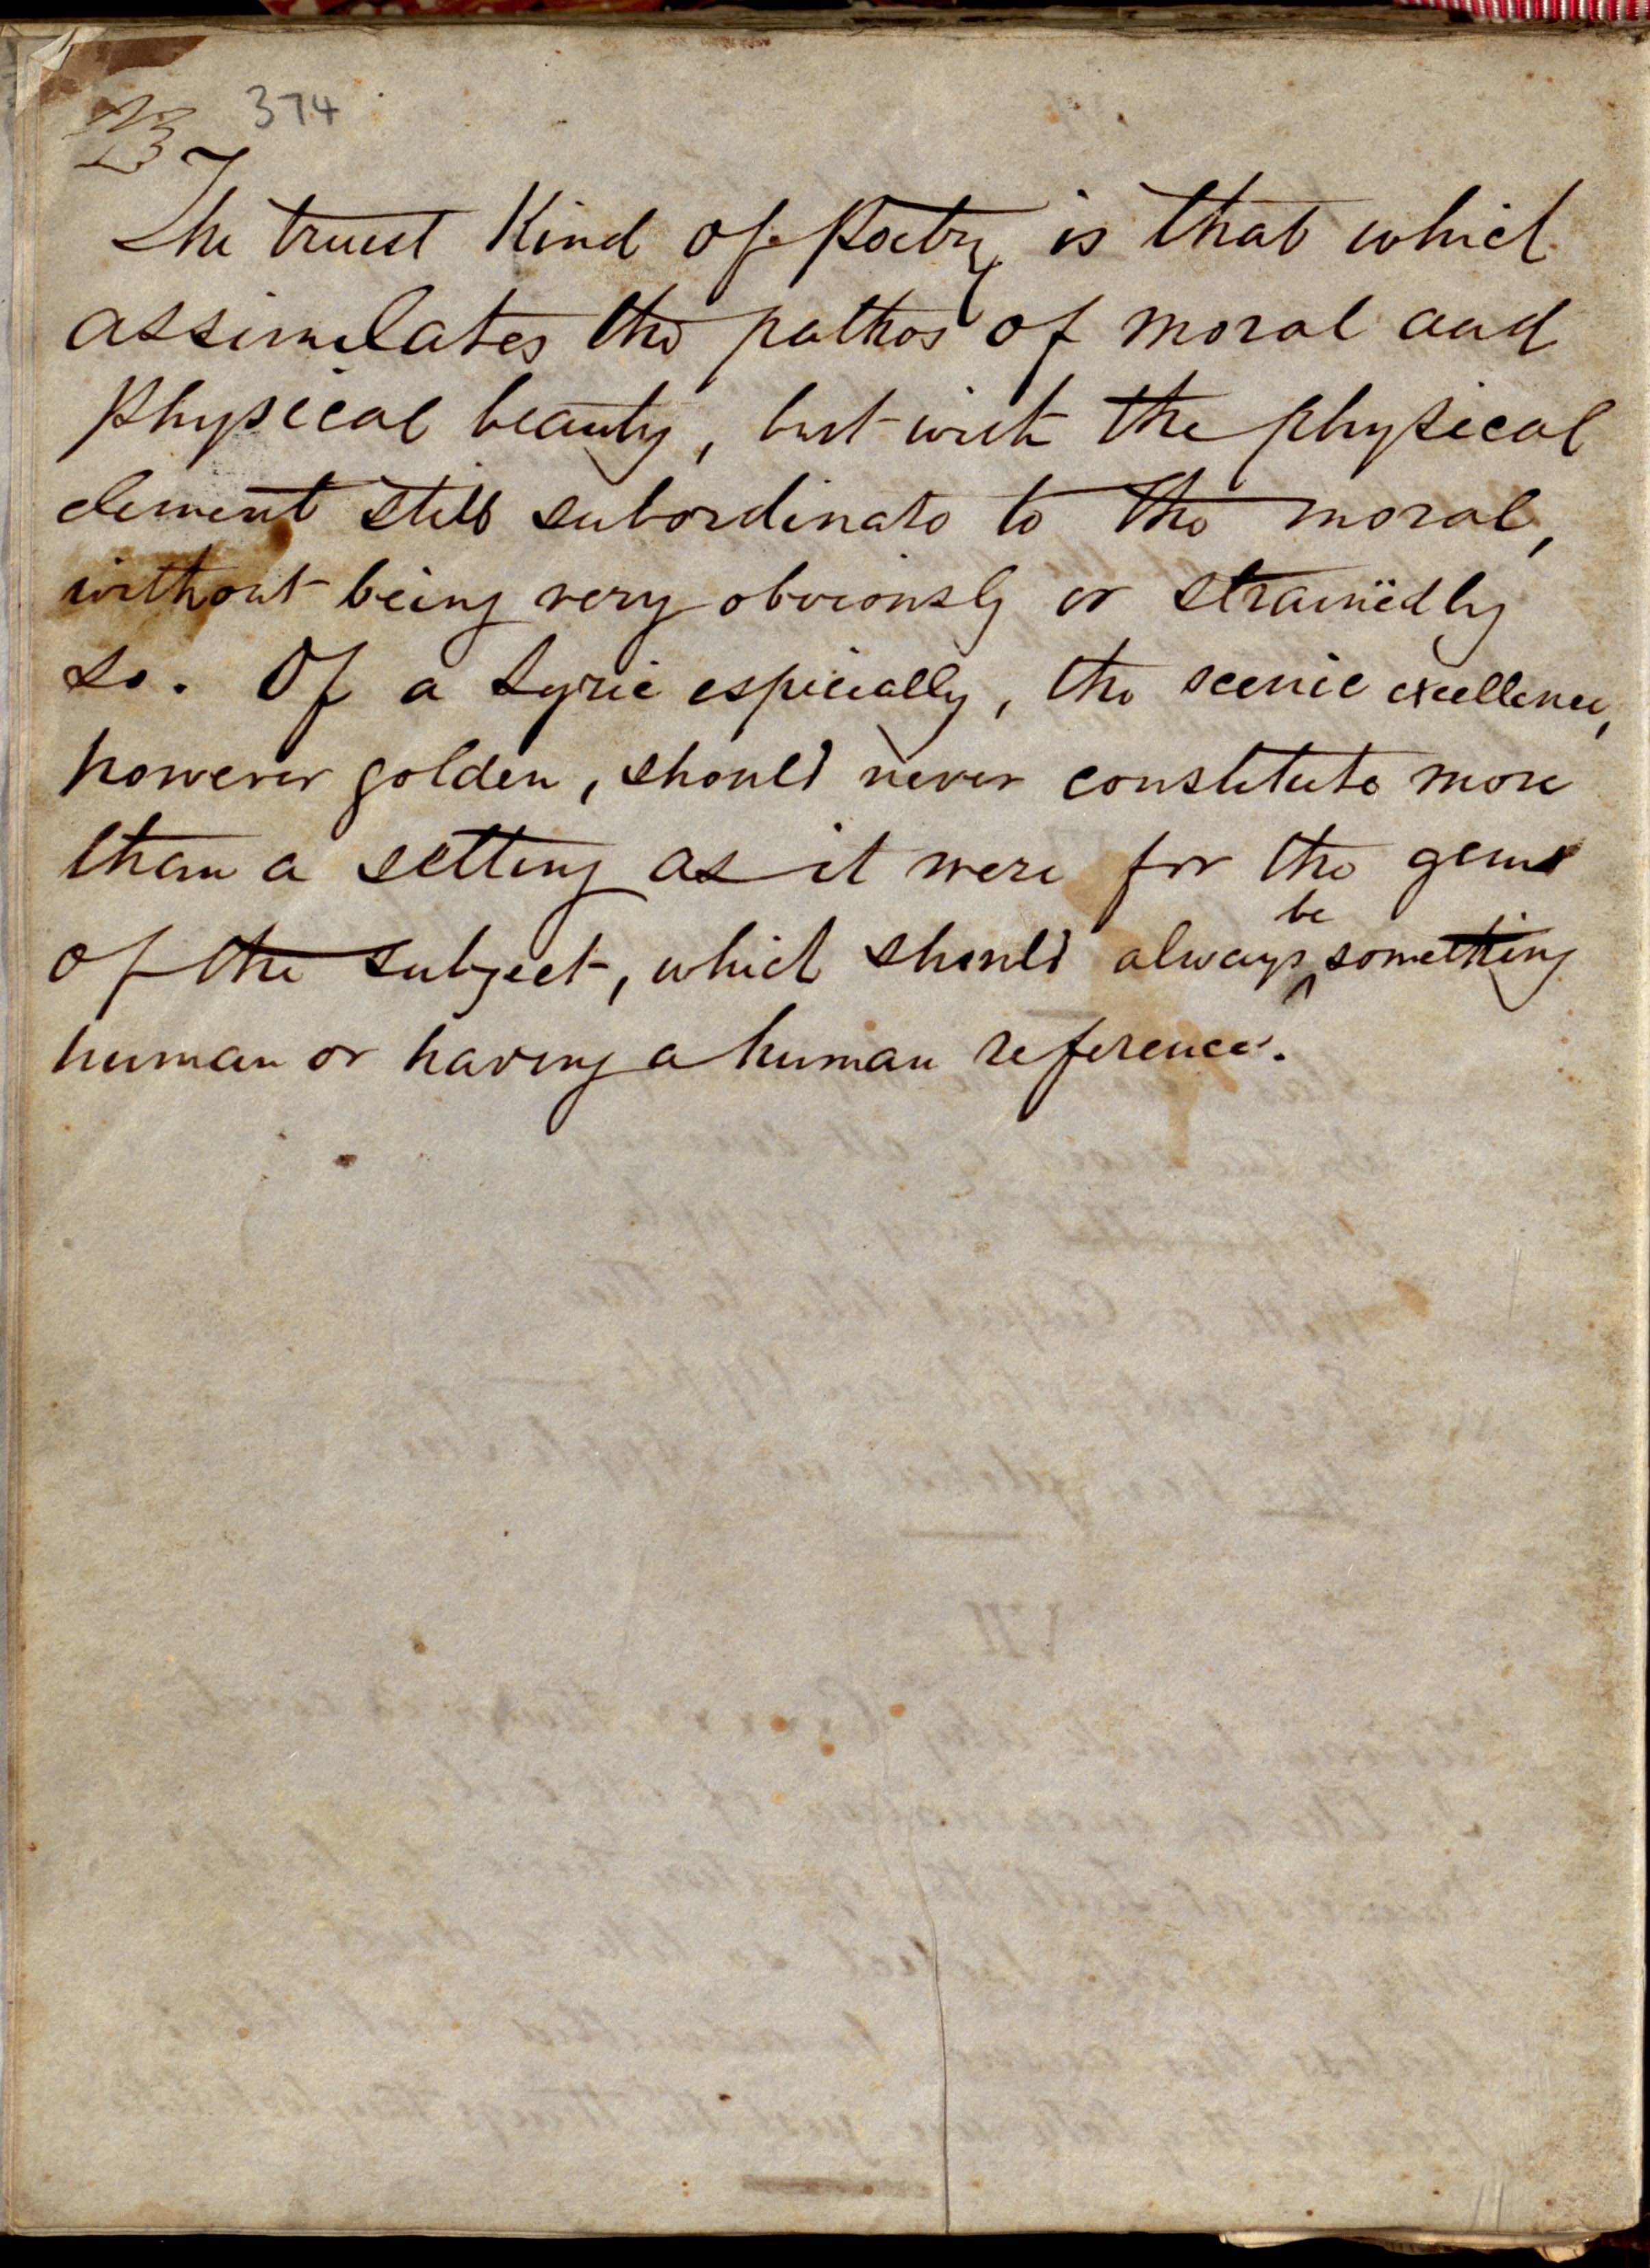 374
The truest Kind of Poetry is that which
assimilates the pathos of moral and
physical beauty, but with the physical
element still subordinate to the moral,
without being very obviously or strainëdly
so. Of a Lyric especially, the scenic excellence,
however golden, should never constitute more
than a setting as it were for the gem
be
of the subject, which should always something
human or having a human reference.